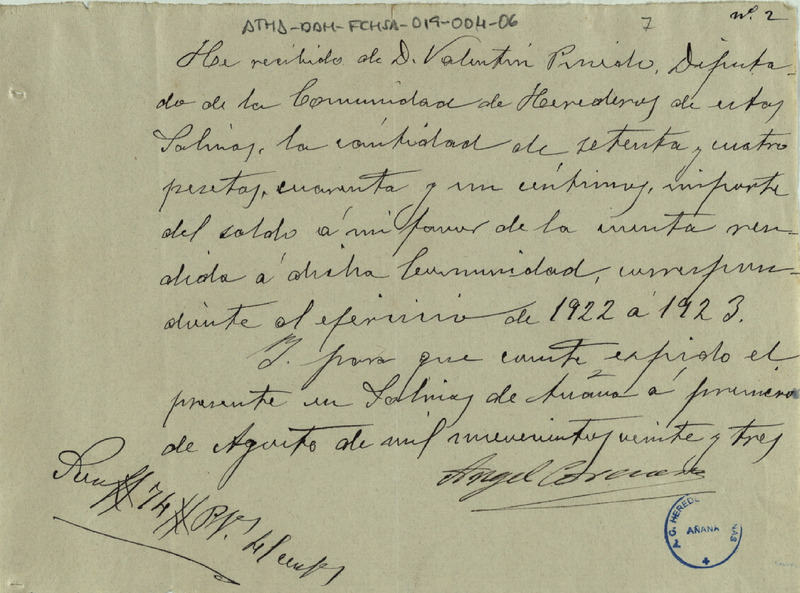 ATHA-DAH-FCHSA-019-004-06
7
nº. 2
He recibido de D. Valentín Pinedo, Diputa-
do de la Comunidad de Herederos de estas
Salinas, la cantidad de setenta y cuatro
pesetas, cuarenta y un céntimos, importe
del saldo á mi favor de la cuenta ren-
dida á dicha Comunidad, correspon-
diente al ejercicio de 1922 á 1923.
Y para que conste expido el
presente en Salinas de Añana á primero
de Agosto de mil novecientos veinte y tres
Angel
Son # 74 # Pts.
A. G. HEREDE NAS
AÑANA